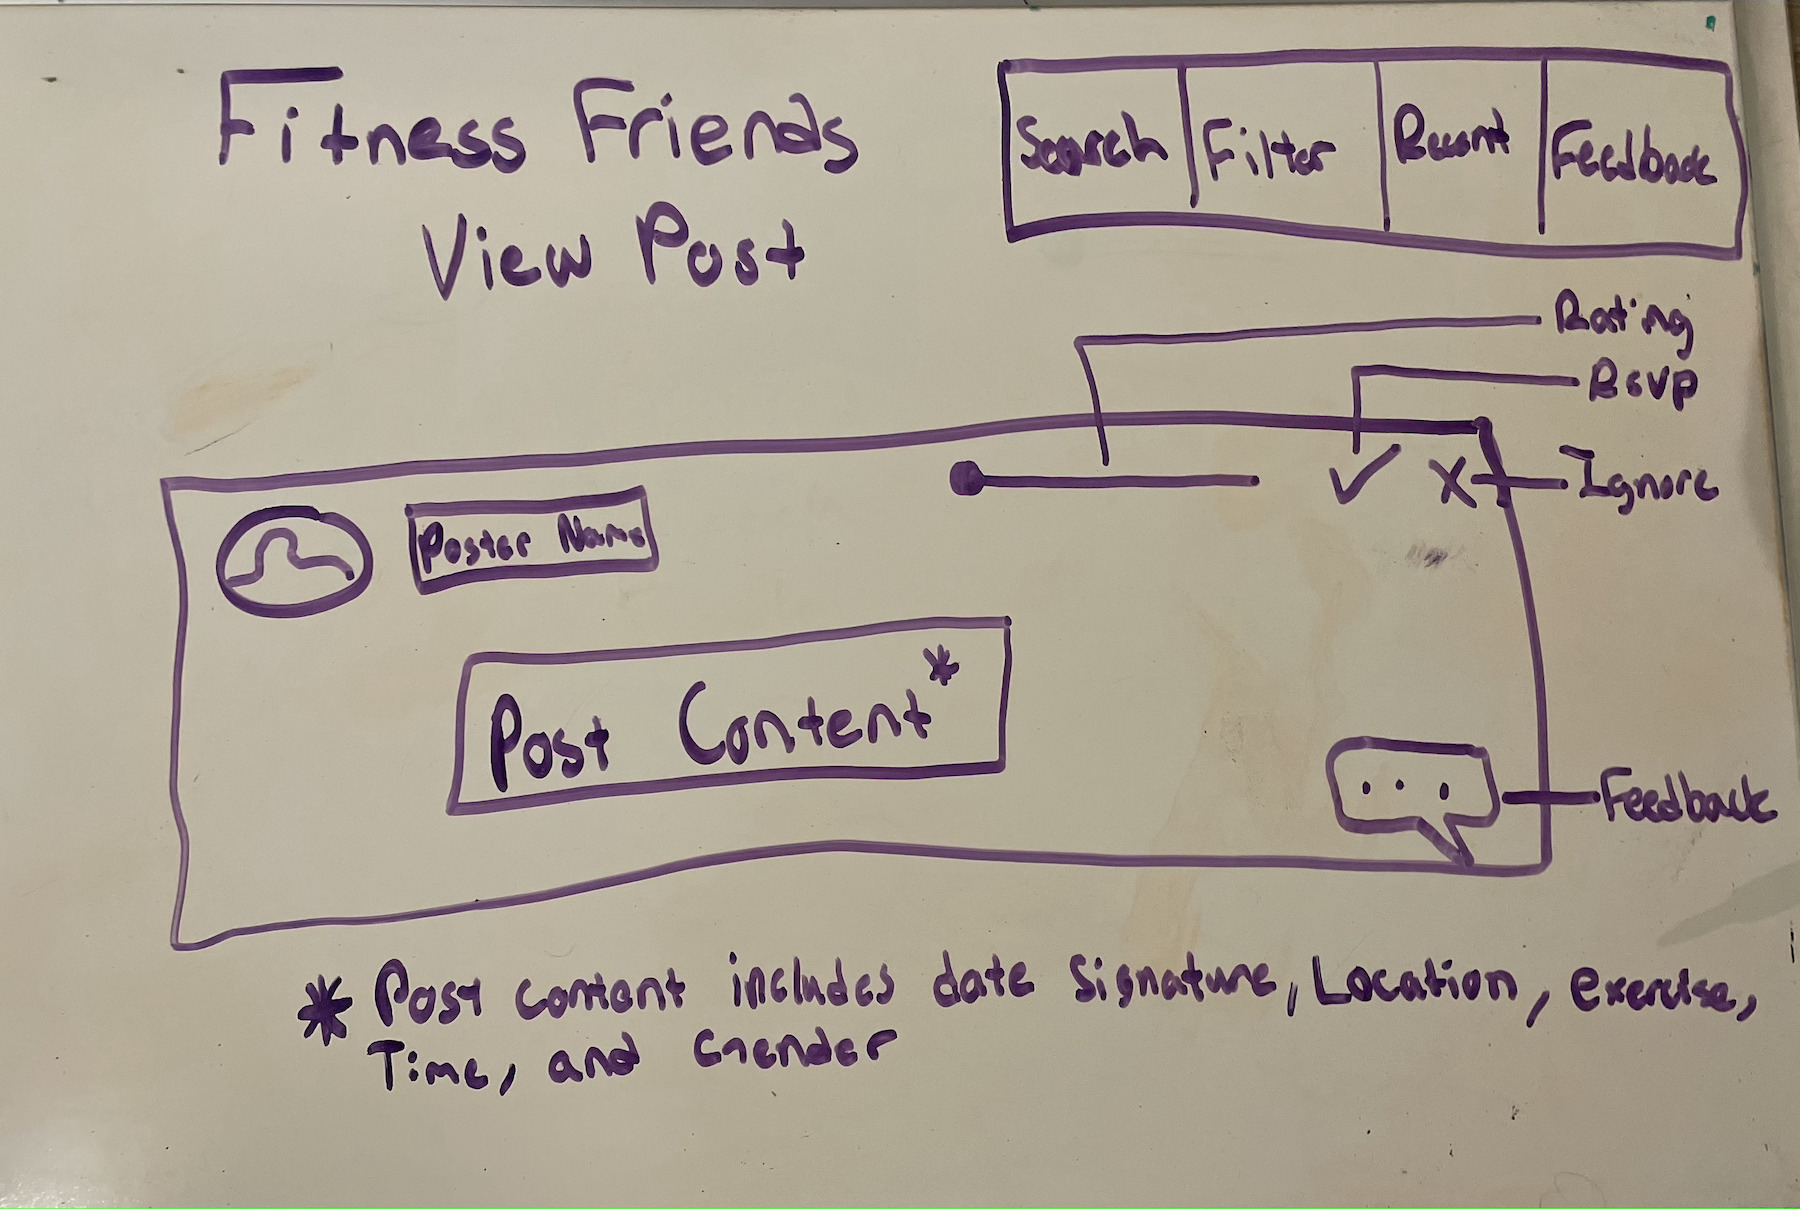 Fitness Friends
View Post
Search Filter Recent Feedback
Rating
RSVP
Ignore
Poster Name
Post Content*
...
Feedback
* Post content includes date signature, Location, exercise,
Time, and Gender